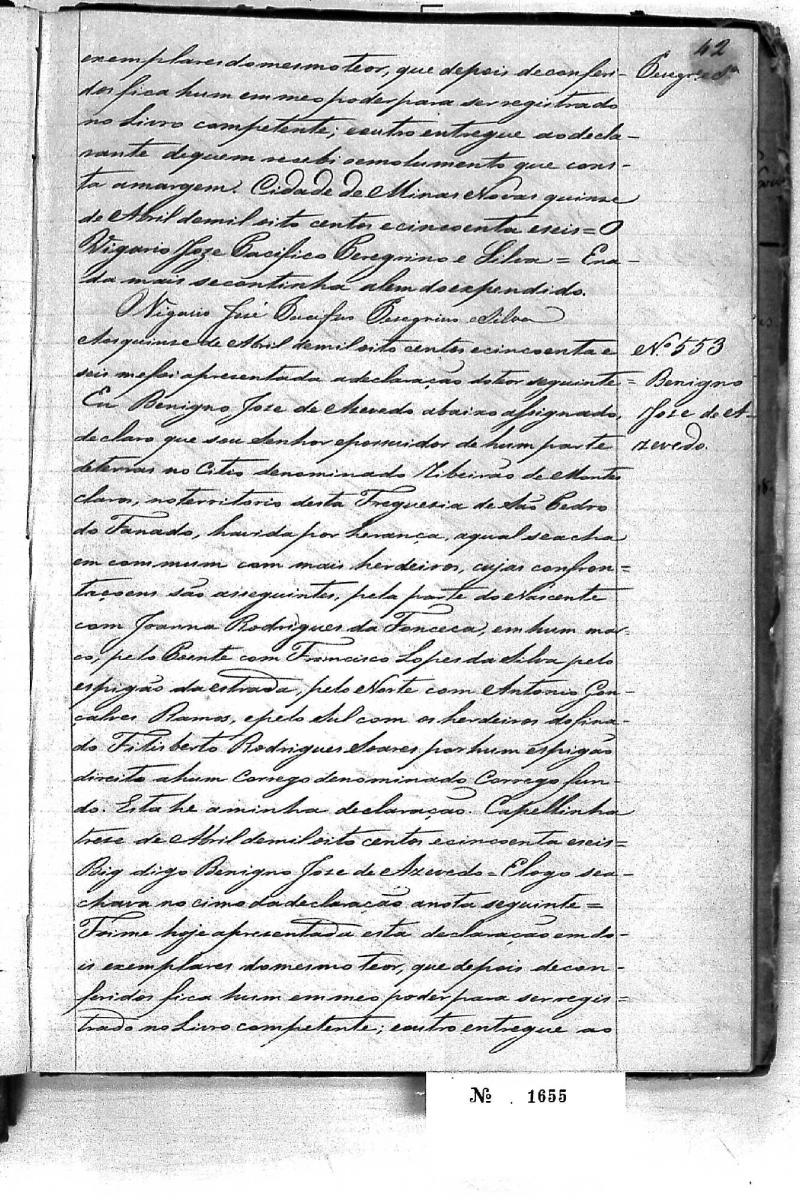 42
exemplares do mesmo teor, que depois de conferi-
dos fica hum em meo poder para ser registrado
no Livro competente; e outro entregue ao decla-
rante de quem recebi o emolumento que cons-
ta a margem. Cidade de Minas Novas quinse
de Abril de mil oito centos e cincoenta e seis = O
Vigario Joze Pacifico Peregrino e Silva = E na-
da mais se continha alem do expendido.
O Vigario José Pacifico Peregrino e Silva
Aos quinse de Abril de mil oito centos e cincoenta e
seis me foi apresentada a declaração do teor seguinte =
Eu Benigno Jose de Azevedo abaixo assignado,
declaro que sou Senhor e possuidor de hum parte
de terras no Citio denominado Ribeirão de Montes
claros, no territorio desta Freguesia de São Pedro
do Fanado, havida por herança, a qual se acha
em commum com mais herdeiros, cujas confron=
taçoens são as seguintes, pela parte do Nascente
com Joanna Rodrigues da Fonceca, em hum mar-
co, pelo Poente com Francisco Lopes da Silva pelo
espigão da estrada, pelo Norte com Antonio Gon-
çalves Ramos, e pelo Sul com os herdeiros do fina-
do Filisberto Rodrigues Soares por hum espigão
direito a hum Corrego denominado Corrego fun-
do. Esta he a minha declaração. Capellinha
trese de Abril de mil oito centos e cincoenta e seis =
Big digo Benigno Jose de Azevedo = E logo sea-
chava no cimo da declaração a nota seguinte =
Foi me hoje apresentada esta declaração em do-
is exemplares do mesmo teor, que depois de con-
feridos fica hum em meo poder para ser regis=
trado no Livro competente; e outro entregue ao
Nº 553
Benigno
Joze de A-
zevedo.
№ 1655